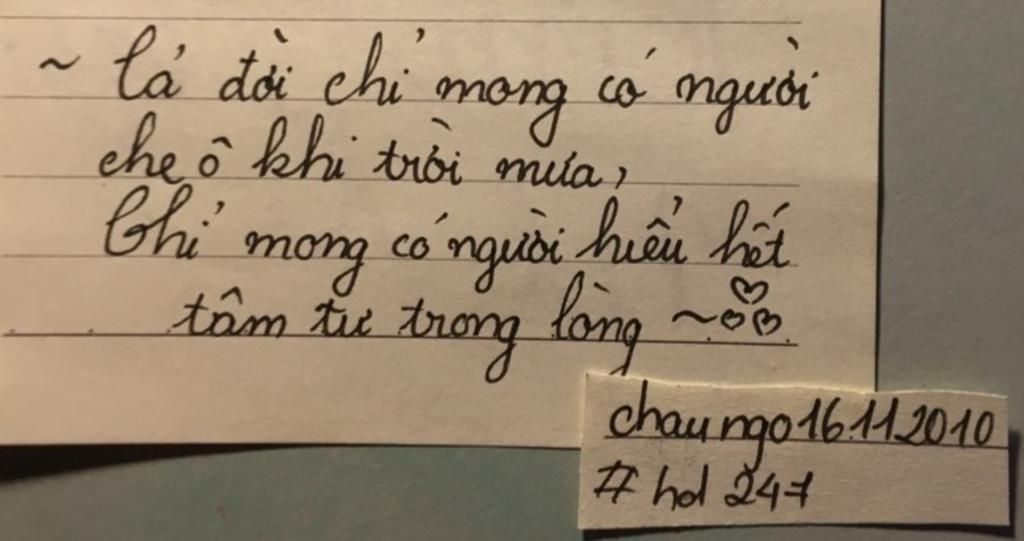 ~ Cả đời chỉ mong có người
che ô khi trời mưa,
Chỉ mong có người hiểu hết
tâm tư trong lòng ~
chaungo16.11.2010
# hd 247